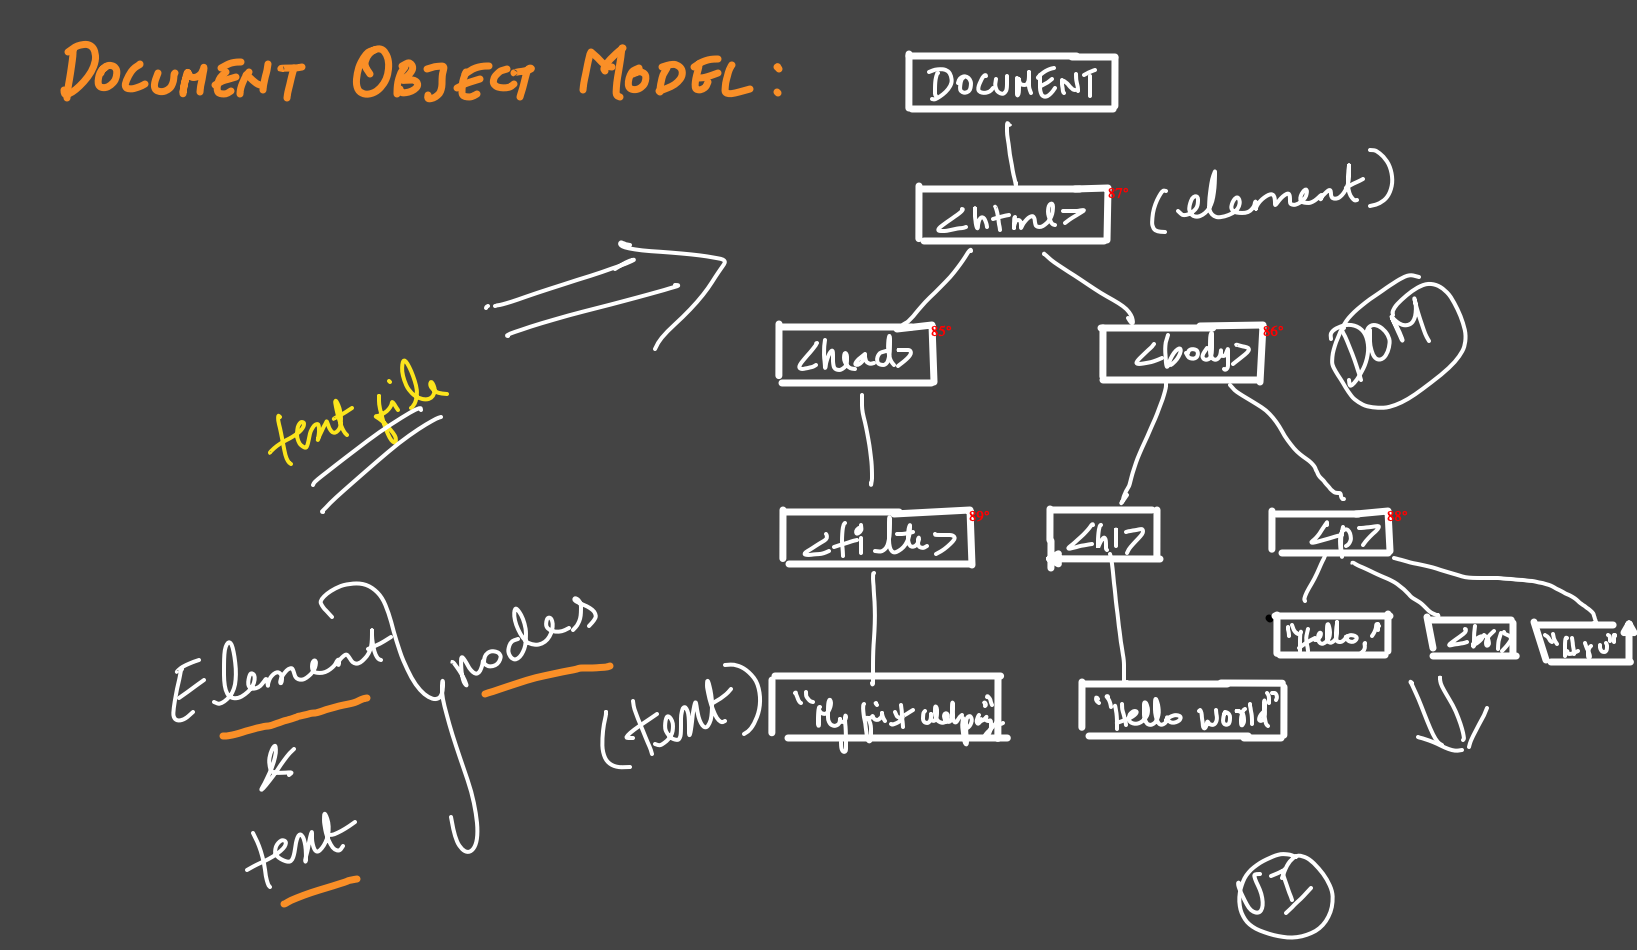 DOCUMENT OBJECT MODEL:
DOCUMENT
<html>
87°
(element)
<head>
85°
<body>
86°
DOM
text file
<title>
89°
<h1>
<p>
88°
"Hello,"
<br>
Element
&
text
nodes
(text)
"My first webpage"
"Hello world"
UI